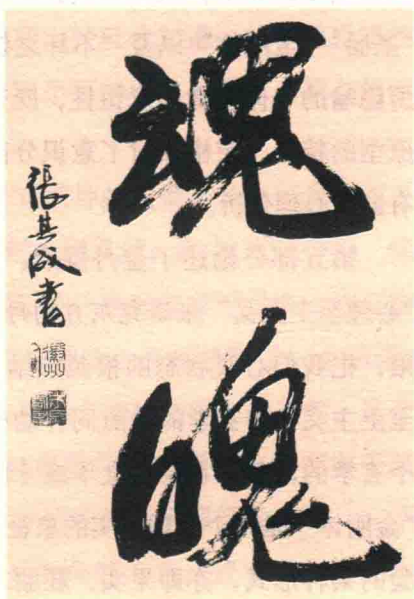 魂魄
張其成書